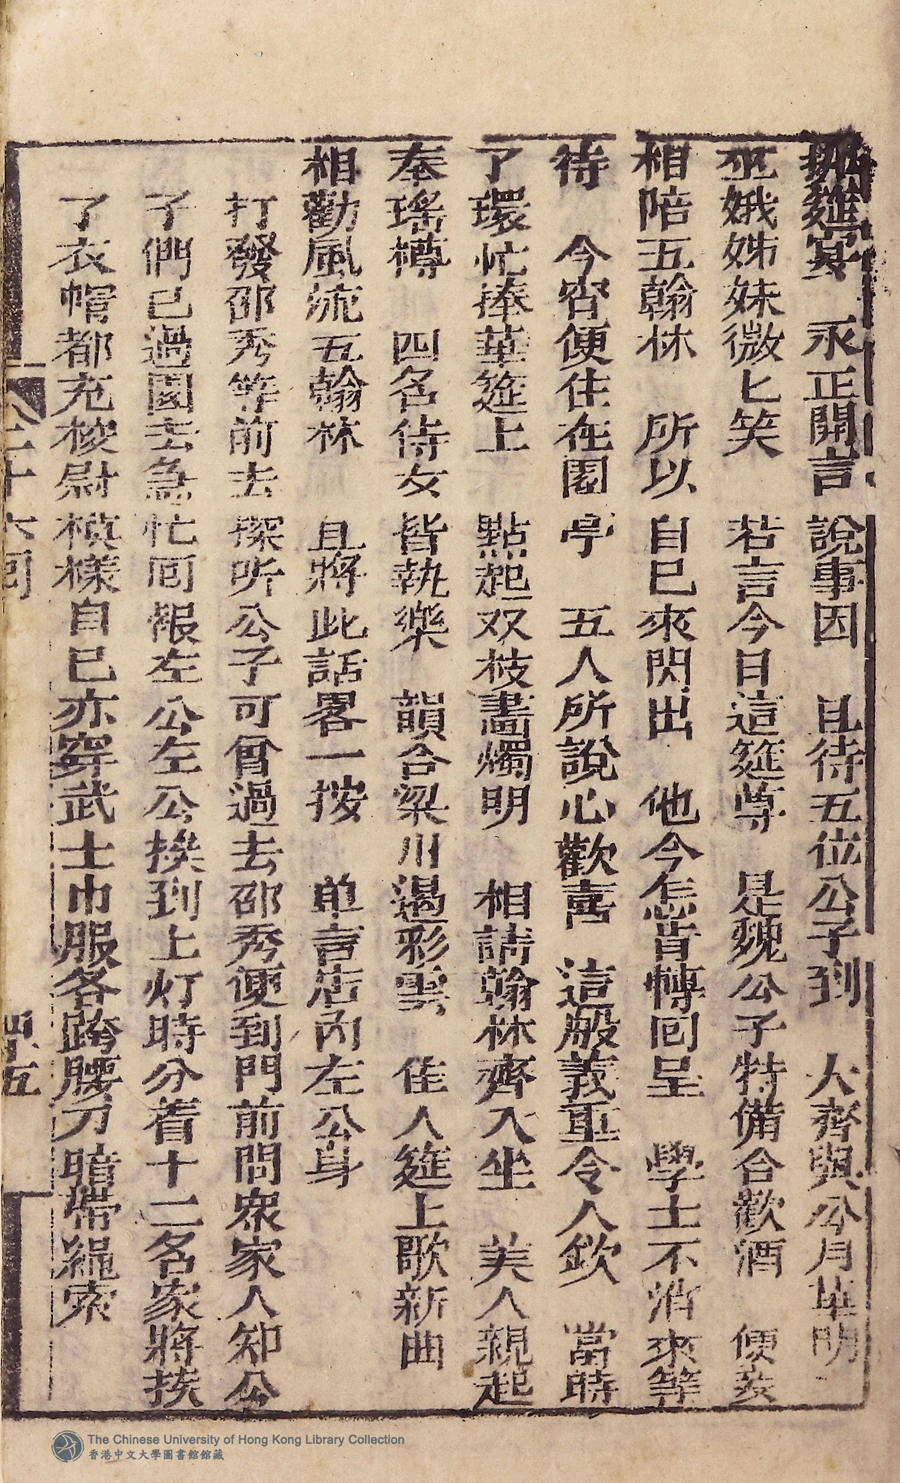 筵宴　永正開言說事因　且待五位公子到　人齊與公月華明
巫娥姊妹微匕笑　若言今日這筵尊　是魏公子特備合歡酒　便妾
相陪五翰林　所以自已來閃出　他今怎肯轉囘呈　學士不消來等
待　今宵便住在園亭　五人所說心歡喜　這般義重令人欽　當時
了環忙捧華筵上　點起双枝畵燭明　相請翰林齊入坐　美人親起
奉瑤樽　四名侍女皆執樂　韻合梁州遏彩雲　隹人筵上歌新曲
相勸風流五翰林　且將此話畧一按　单言店內左公身
打發邵秀等前去探听公子可曾過去邵秀便到門前問衆家人知公
子們已過園去急忙囘報左公左公挨到上灯時分着十二名家將扶
了衣帽都充梭尉模様自已亦穿武士巾服各跨腰刀暗帶繩索
二十六囘
四十五
The Chinese University of Hong Kong Library Collection
香港中文大學圖書館館藏